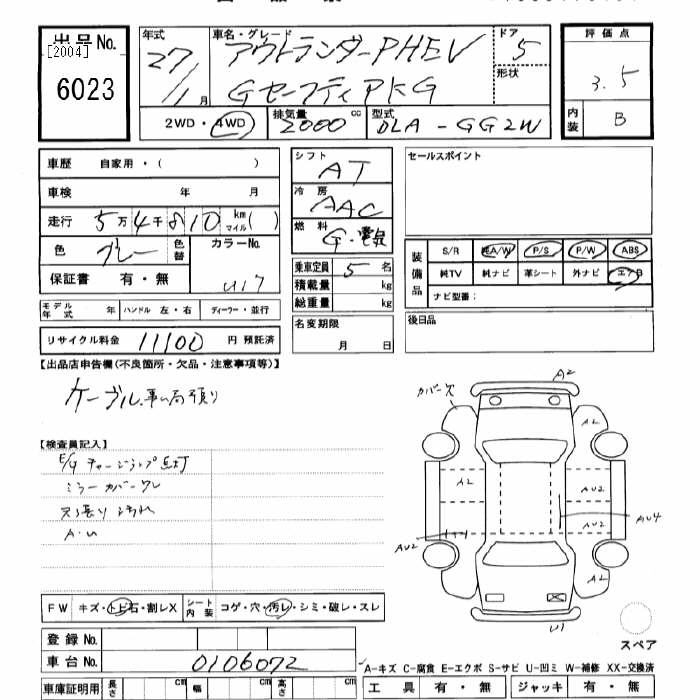 出品 No.
[2004]
6023
年式
27/1 月
車名・グレード
アウトランダーPHEV
GセーフティPKG
ドア
5
形状
2WD・4WD
排気量
2000 cc
型式
DLA-GG2W
評価点
3.5
内装
B
車歴 自家用・( )
車検 年 月
走行 5万4千810 km マイル( )
色 グレー 色替
カラーNo.
U17
保証書 有・無
モデル年式 年 ハンドル 左・右 ディーラー・並行
リサイクル料金 11100 円 預託済
シフト
AT
冷房
AAC
燃料
G・電気
乗車定員 5 名
積載量 kg
総重量 kg
名変期限
月 日
セールスポイント
装備品
S/R 純A/W P/S P/W ABS
純TV 純ナビ 革シート 外ナビ エアB
ナビ型番:
後日品
【出品店申告欄(不良箇所・欠品・注意事項等)】
ケーブル事ム局預り
【検査員記入】
E/g チャージランプ点灯
ミラーカバーワレ
天張り汚れ
A.U
A2
カバー欠
A2
A2
AU2
AU2
AU4
AU2
A2
U1
スペア
FW キズ・トビ石・割レX
シート内装 コゲ・穴・汚レ・シミ・破レ・スレ
登録 No.
車台 No. 0106072
車庫証明用 長さ cm 幅 cm 高さ cm
A-キズ C-腐食 E-エクボ S-サビ U-凹ミ W-補修 XX-交換済
工具 有・無 ジャッキ 有・無